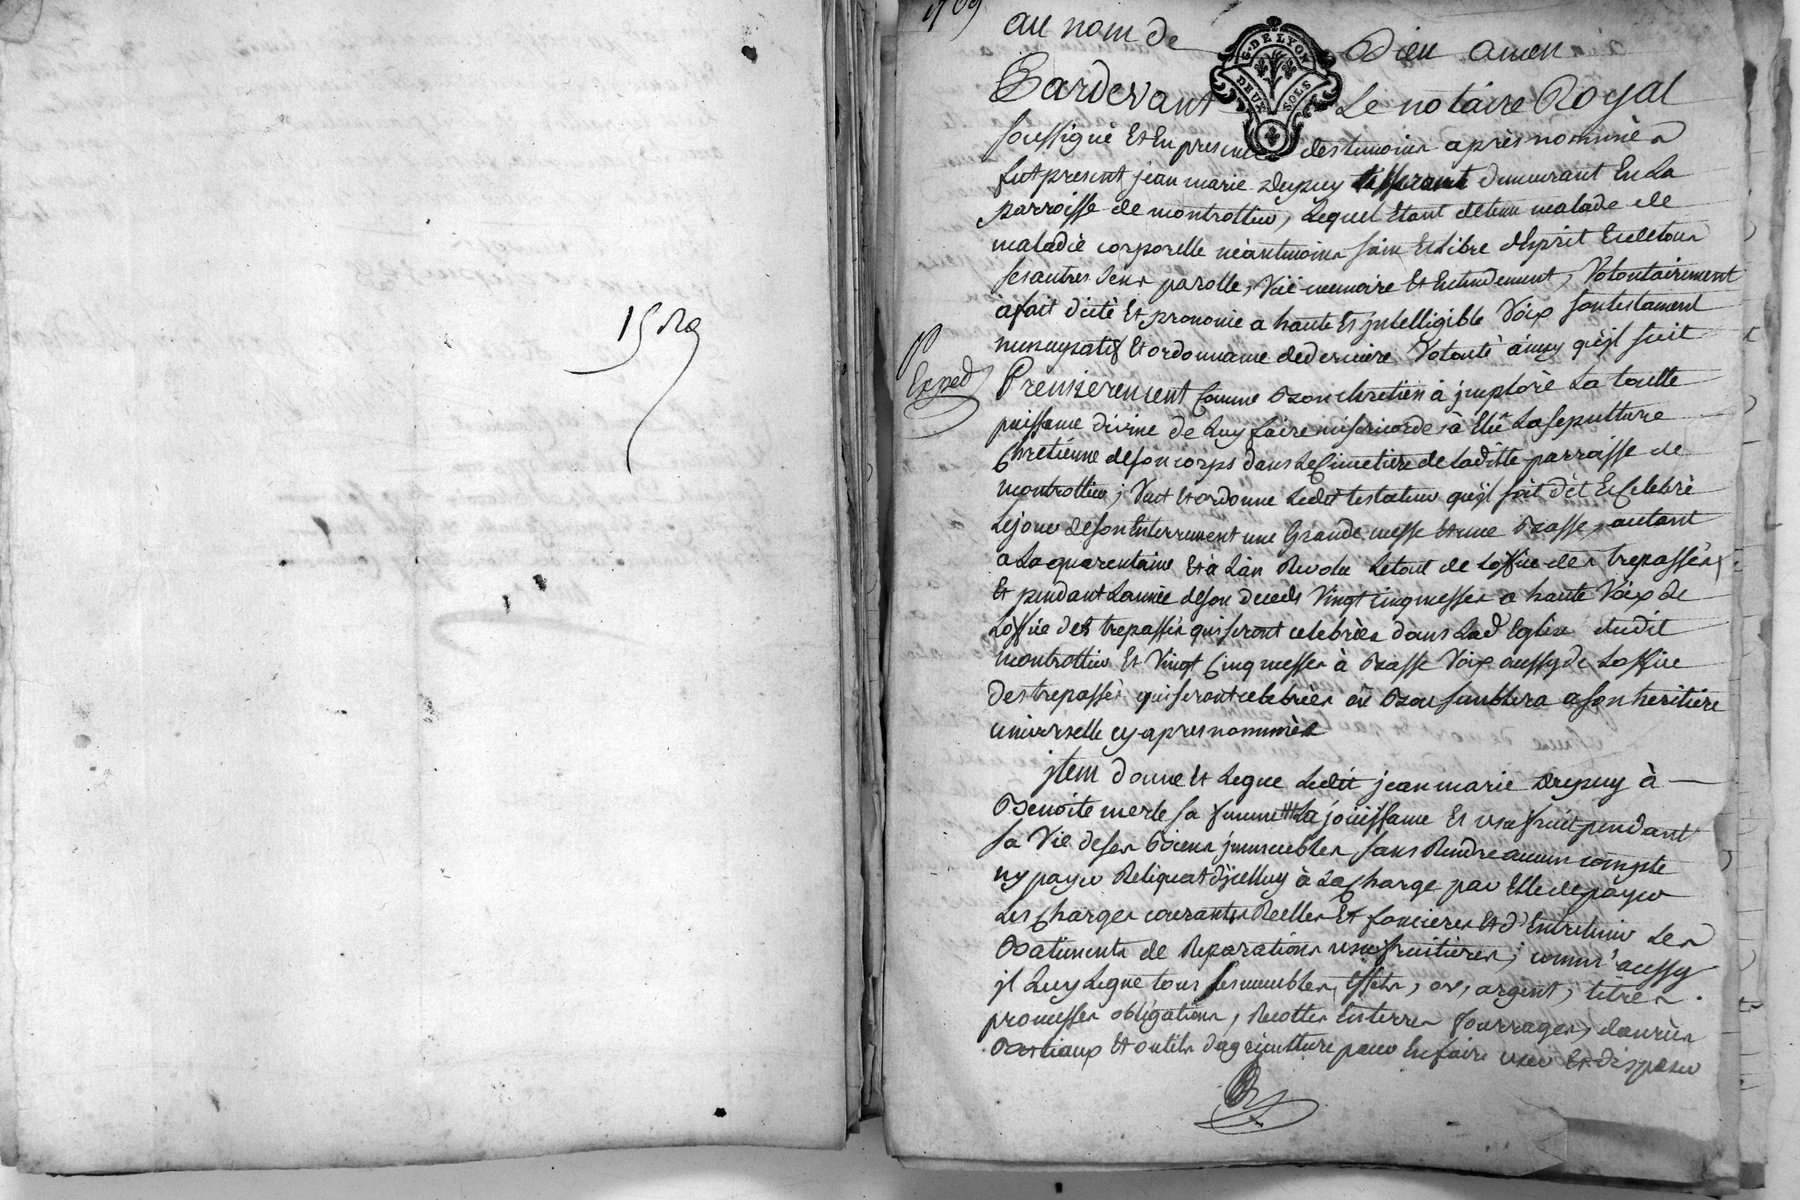 1769
au nom de Dieu amen
G. DE LYON
DEUX SOLS
Pardevant Le notaire Royal
soussigné Et En presence des temoins après nommés
fut present jean marie Dupuy demeurant En La
parroisse de montrottier, Lequel Etant detenu malade de
maladie corporelle néantmoins sain Et Libre d'Esprit Et de tous
ses autres sens parolle, Vüe memoire Et Entendement, Volontairement
a fait dicté Et prononcé a haute Et jntelligible Voix son testament
nuncupatif Et ordonnance de derniere Volonté ainsy qu'il suit
Exped
Premierement Comme bon chretien à jmploré La toutte
puissance divine de Luy faire misericorde, à Elû La sepulture
Chretiénne de son corps dans Le Cimetiere de Laditte parroisse de
montrottier; Veut Et ordonne Ledit testateur qu'il soit dit Et Celebré
Le jour de son Enterrement une Grande messe Et une Basse, autant
a La quarentaine Et à L'an Revolu Le tout de Loffice des trepassés,
Et pendant L'année de son deceds Vingt cinq messes a haute Voix de
Loffice des trepassés qui seront celebrées dans Lad Eglise dudit
montrottier Et Vingt Cinq messes à Basse Voix aussy de Loffice
des trepassés qui seront celebrées où bon semblera a son heritiere
universelle cy-apres nommée
jtem donne Et Legue Ledit jean marie Dupuy à
Benoite merle sa femme La joüissance Et usufruit pendant
sa Vie de ses Biens jmmeubles sans Rendre aucun compte
ny payer Reliquat d'jcelluy à La Charge par Elle de payer
Les Charges courantes Reelles Et foncieres Et d'Entretenir Les
Batiments de Reparations usufruitieres; comm' aussy
jl Luy Legue tous ses meubles, Effets, or, argent, titres
promesses obligations, Recoltes En terres fourrages, danrées
Bestiaux Et outils d'agriculture pour En faire user Et disposer